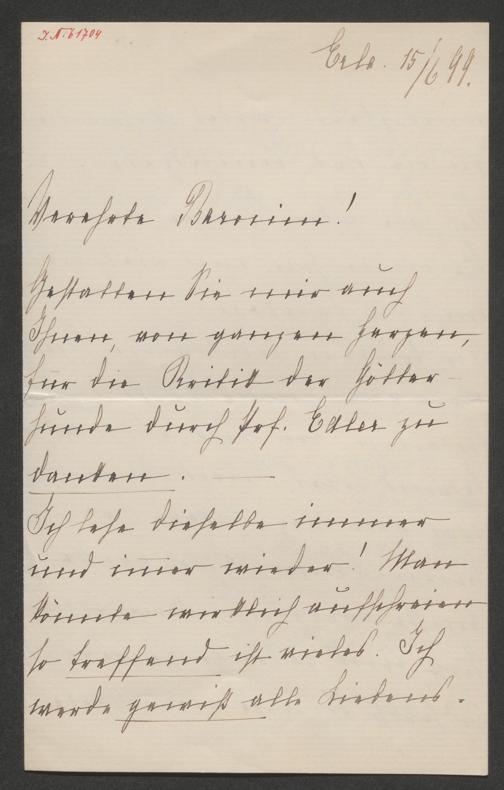 J.N. 61704
Erla. 15/6 99.
Verehrte Baronin!
Gestatten Sie mir auch
Ihnen, von ganzen Herzen,
für die Kritik der Götter
hunde durch Prf. Edler zu
danken. —
Ich lese dieselbe immer
und im̄er wieder! Man
könnte wirklich aufschreien
so treffend ist vieles. Ich
werde gewiß alle Liebens-